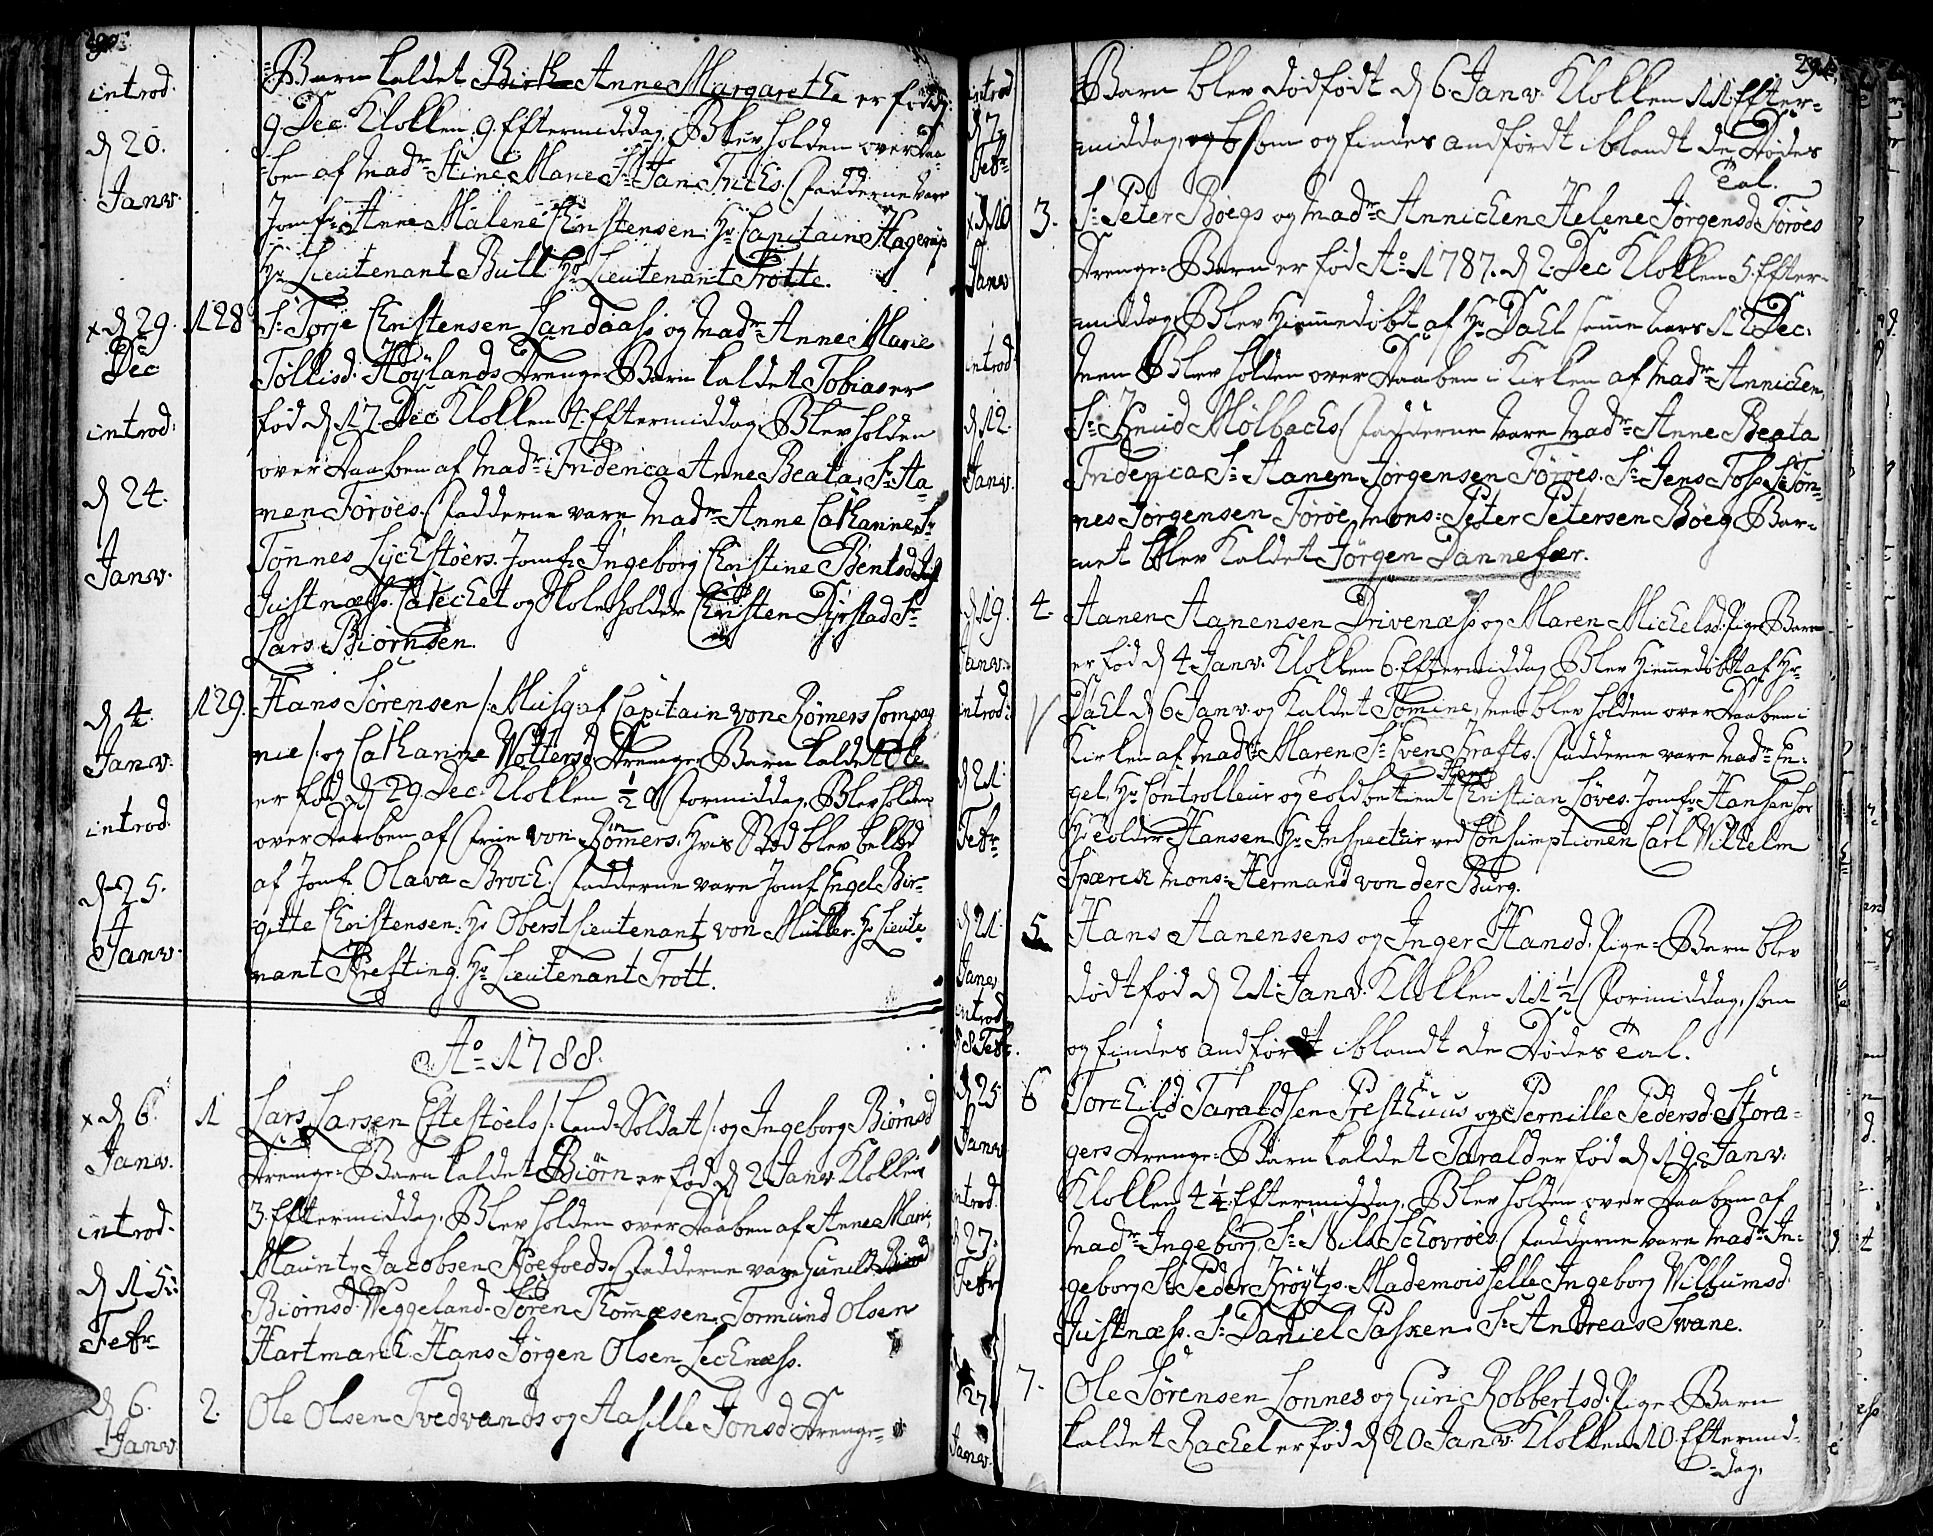 290.
introd.
d 20.
Janv.
Barn kaldet Anne Margarethe er fød d.
9 Dec. Klokken 9. Eftermiddag, Blev holden over Daa-
ben af Madme Stine Marie Sr. Jan Fricks. Fadderne vare
Jomfr. Anne Malene Christensen. Hr. Capitaine Hagerup
Hr. Lieutenant Bull. Hr. Lieutenant Trotte.
x d 29.
Dec
introd.
d 24.
Janv.
128
Sr. Torje Christensen Landaass og Madme Anne Marie
Tøllisd. Høylands Drenge-Barn kaldet Tobias er
fød d 17. Dec. Klokken 4. Eftermiddag, Blev holden
over Daaben af Madme Friderica Anne Beata, Sr. Aa-
nen Førøes. Fadderne vare Madme Anne Catharine Sr.
Tønnes Lyckstøers. Jomfr. Ingeborg Christine Bentsd.
Justnæss. Catechet og Skoleholder Christen Dyrstad Sr.
Lars Biørnsen.
d 4.
Janv.
introd.
d 25.
Janv.
129.
Hans Sørensen /: Musq: af Capitain von Rømers Compag
nie /: og Catharine Woltersd. Drenge-Barn kaldet Ole
er fød d 29 Dec. Klokken ½ 9 Formiddag, Blev holden
over Daaben af Frue von Rømers, Hvis Sted blev bekled
af Jomfr. Olava Broch. Fadderne vare Jomf. Engel Bir-
gitte Christensen. Hr. Oberstlieutenant von Müller. Hr. Lieute
nant Krefting. Hr. Lieutenant Trott.
Ao 1788.
x d 6.
Janv.
introd.
d 15.
Febr.
1
Lars Larsen Eftestøels /: Land-Soldat /: og Ingeborg Biørnsd
Drenge-Barn kaldet Biørn er fød d 2 Janv. Klokken
3. Eftermiddag, Blev holden over Daaben af Anne Marie
Mauritz Jacobsen Hoefoeds. Fadderne vare Gunild
Biørnsd. Weggeland. Søren Thomæsen. Tormund Olsen
Hartmark. Hans Jørgen Olsen Lecknæss.
d 6.
Janv.
2.
Ole Olsen Tvedvands og Aasille Jonsd. Drenge-
291.
introd
d 7.
Febr.
Barn blev dødfødt d 6. Janv. Klokken 11. Efter-
middag, som og findes andfördt iblandt de Dødes
Tal.
x d 10
Janv
introd.
d 12.
Janv.
3.
Sr. Peter Boegs og Madme Annichen Helene Jørgensd. Førøes
Drenge-Barn er fød Ao 1787. d 2. Dec Klokken 5. Efter-
middag, Blev Hiemmedøbt af Hr. Dahl samme Aars d 12 Dec:
Men Blev holden over Daaben i Kirken af Madme Annichen,
Sr. Knud Mølbachs. Fadderne vare Madme Anne Beata
Friderica Sr. Aanen Jørgensen Førøes. Sr. Jens Foss. Sr. Tøn-
nes Jørgensen Førøe. Mons: Peter Petersen Boeg. Bar-
net blev Kaldet Jørgen Dannefær.
d 19.
Janv.
introd.
d 21.
Febr.
4.
Aanen Aanensen Drivenæss og Maren Michelsd. Pige-Barn
er fød d 4. Janv. Klokken 6. Eftermiddag, Blev Hiemmedøbt af Hr.
Dahl d 6 Janv. og Kaldet Tomine, Men blev holden over Daaben i
Kirken af Madme Maren Sr. Even Krafts. Fadderne vare Madme En-
gel, Hr. Controlleur og Toldbetient Christian Løves. Jomfr. Hansen
Hr. Tolder Hansen. Hr. Inspecteur ved Consumptionen Carl Wilhelm
Spærck. Mons: Hermand von der Burg.
d 21.
Janv
introd
d 8 Febr.
5.
Hans Aanensens og Inger Hansd. Pige-Barn blev
dødtfød d 21. Janv. Klokken 11 ½ Formiddag, som
og findes andfördt iblandt de Dødes Tal.
d 25
Janv.
introd.
d 27.
Febr.
6
Torchild Taraldsen Presthuus og Pernille Pedersd. Stora-
gers Drenge-Barn kaldet Tarald er fød d 19. Janv.
Klokken 4 ¼. Eftermiddag, Blev holden over Daaben af
Madme Ingeborg, Sr. Nils Schovrøes. Fadderne vare Madme In-
geborg Sr. Peder Krøytz. Mademoisselle Ingeborg Willumsd.
Justnæss. Sr. Daniel Passen. Sr. Andreas Swane.
27
Janv.
7.
Ole Sørensen Lonnes og Guri Robbertsd. Pige-Barn
kaldet Rachel er fød d 20 Janv. Klokken 10. Eftermid-
dag,